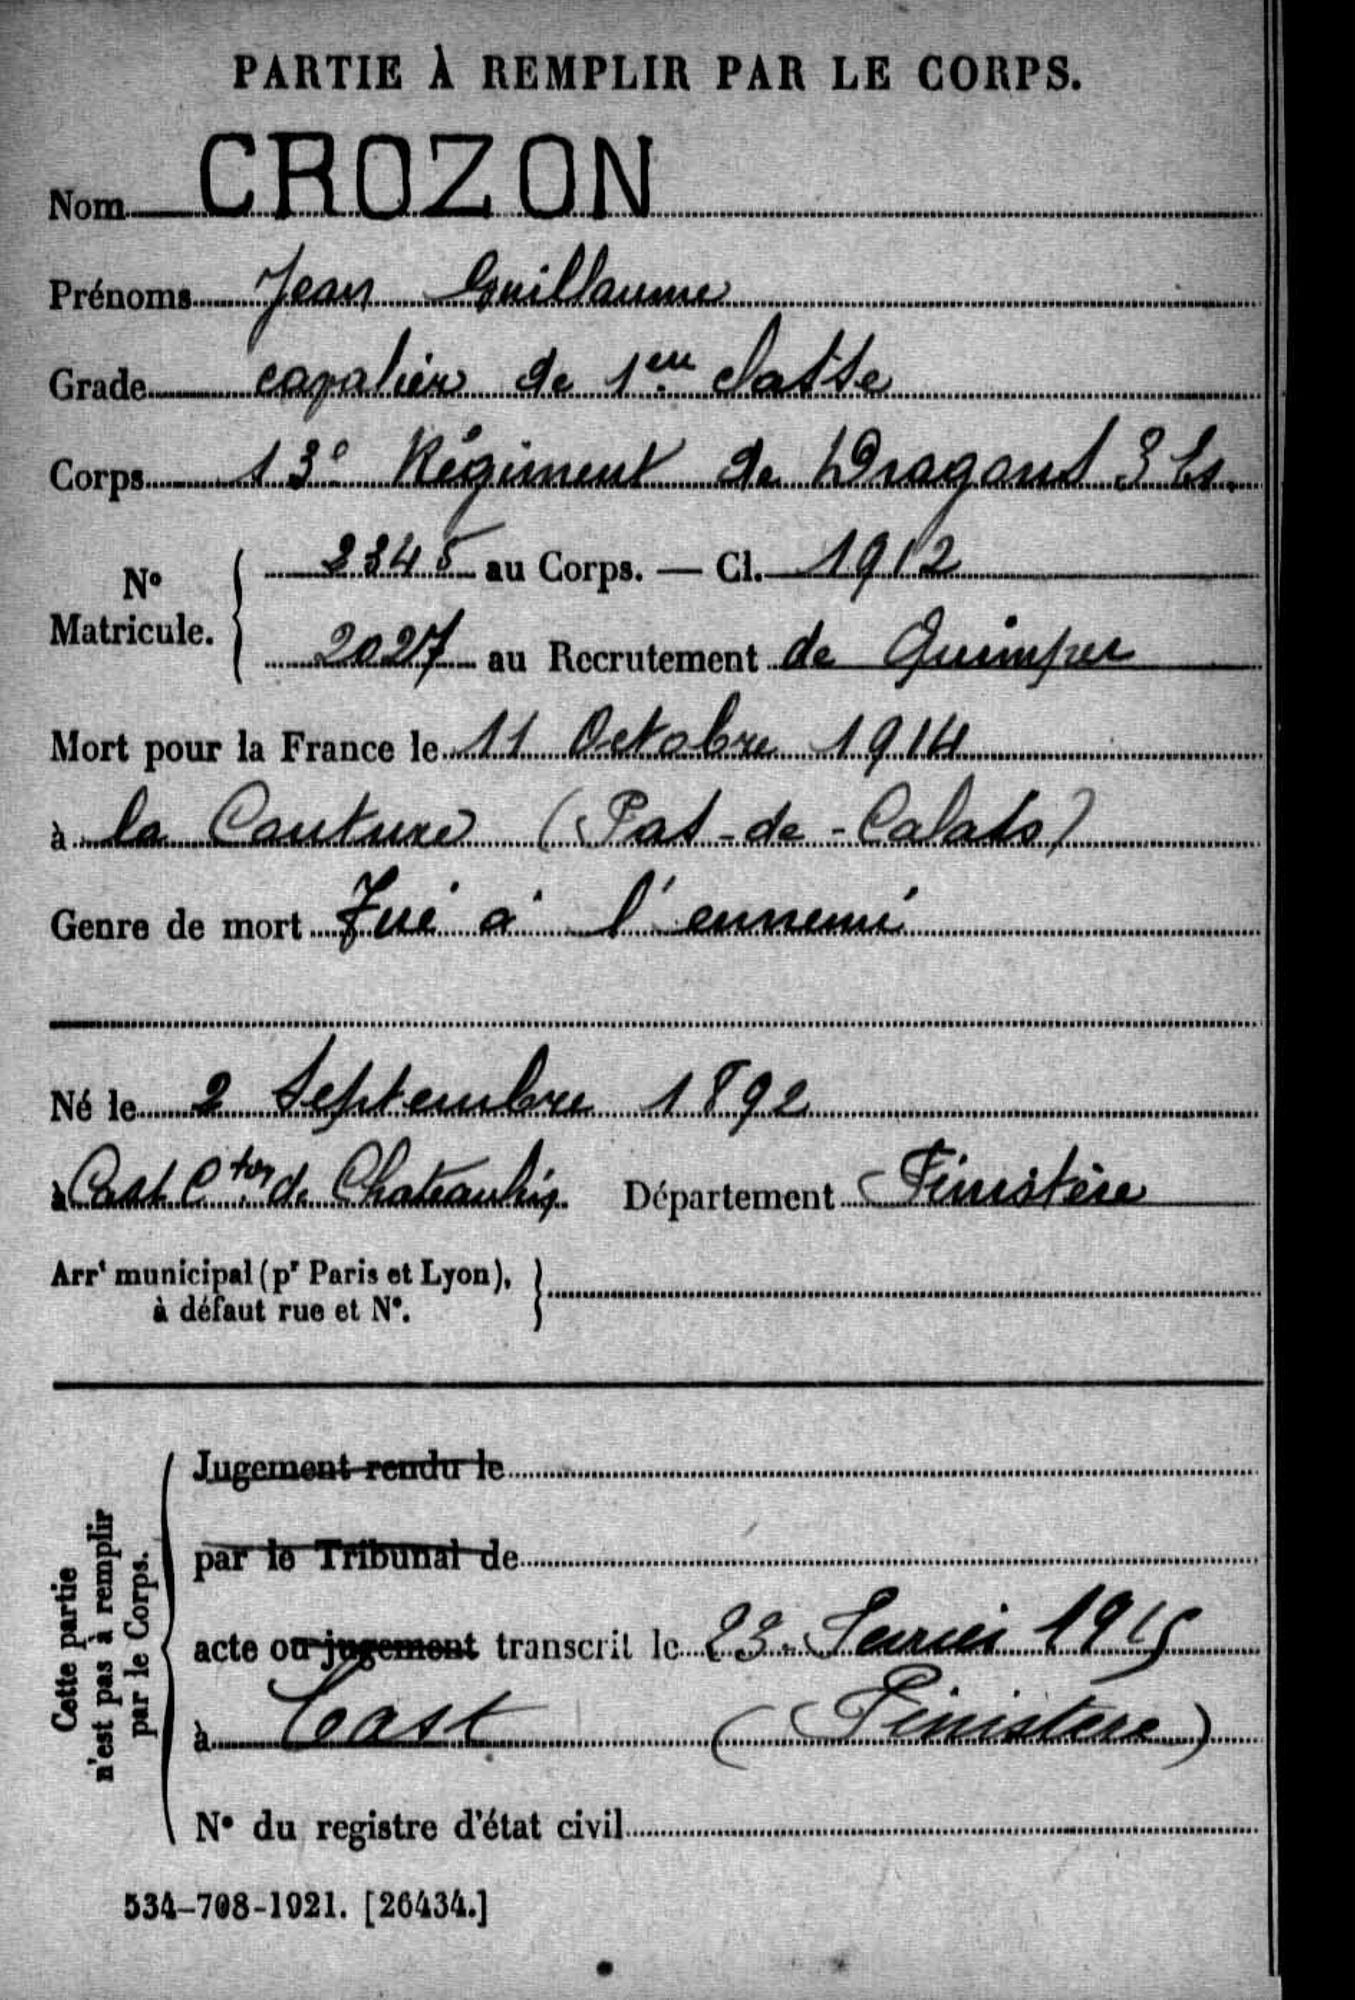 PARTIE À REMPLIR PAR LE CORPS.
Nom CROZON
Prénoms Jean Guillaume
Grade cavalier de 1ere classe
Corps 13e Régiment de Dragons 3 Es.
N° Matricule. 2345 au Corps. — Cl. 1912
2027 au Recrutement de Quimper
Mort pour la France le 11 Octobre 1914
à la Couture (Pas-de-Calais)
Genre de mort Tué à l'ennemi
Né le 2 Septembre 1892
à Cast Cton de Chateaulin Département Finistère
Arrt municipal (pr Paris et Lyon),
à défaut rue et N°.
Cette partie
n'est pas à remplir
par le Corps.
Jugement rendu le
par le Tribunal de
acte ou jugement transcrit le 23 1915
à Cast (Finistere)
N° du registre d'état civil
534-708-1921. [26434.]